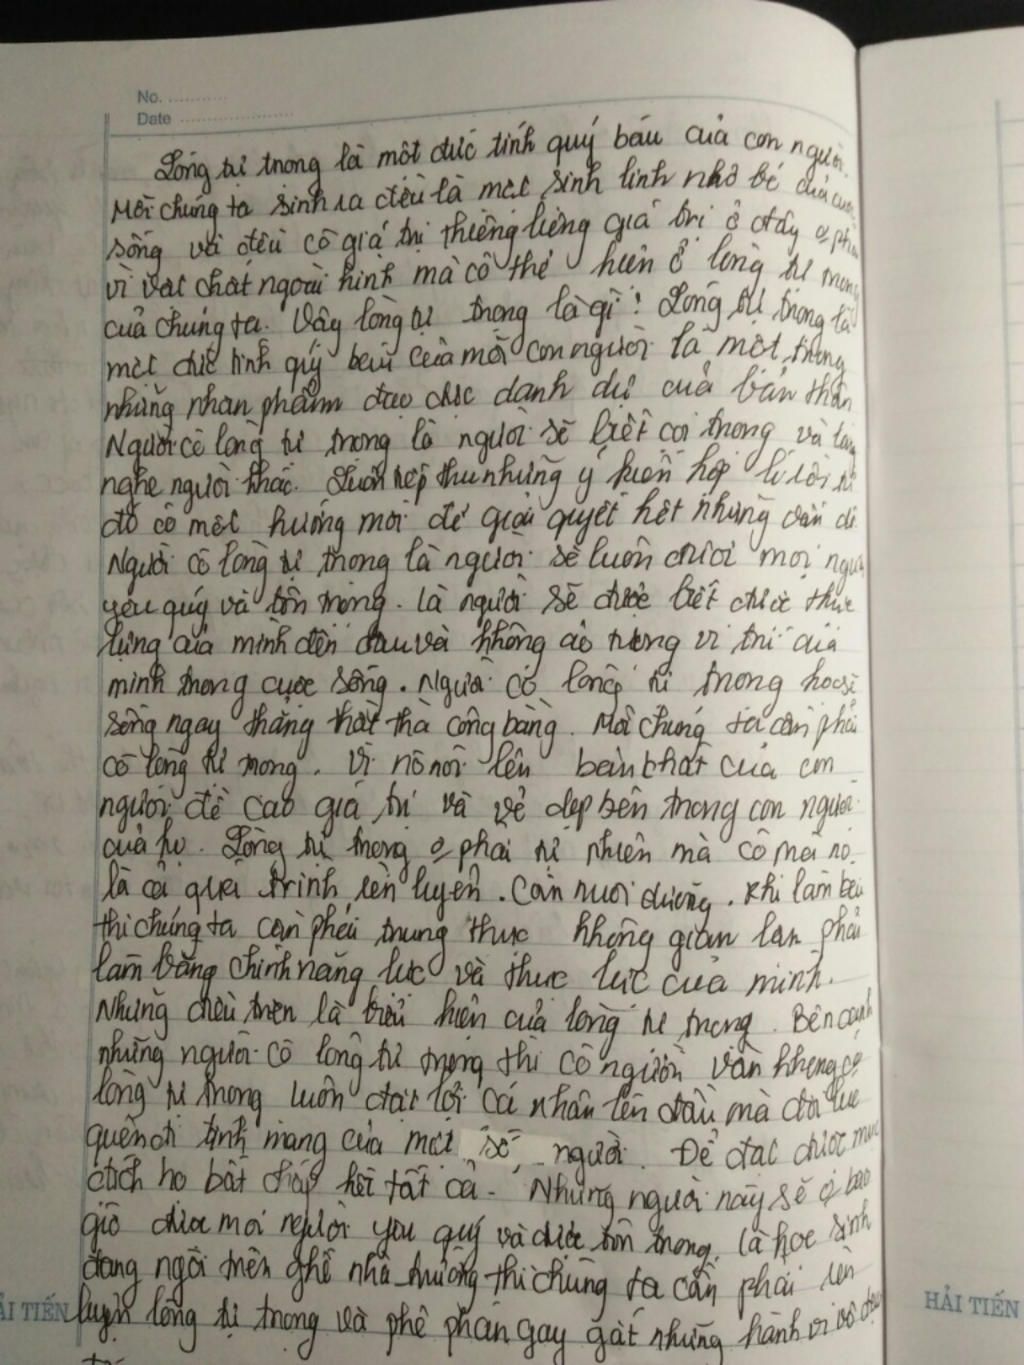 No.
Date
Lòng tự trọng là một đức tính quý báu của con người.
Mỗi chúng ta sinh ra đều là một sinh linh nhỏ bé của cuộc
sống và đều có giá trị thiêng liêng giá trị ở đây o phải
vì vật chất ngoại hình mà có thể hiện ở lòng tự trọng
của chúng ta. Vậy lòng tự trọng là gì? Lòng tự trọng là
một đức tính quý báu của mỗi con người là một trong
những nhân phẩm đạo đức danh dự của bản thân
Người có lòng tự trọng là người sẽ biết coi trọng và lắng
nghe người khác. Luôn tiếp thu những ý kiến hợp lí
đó có một hướng mới để giải quyết hết những vấn đề
Người có lòng tự trọng là người sẽ luôn được mọi người
yêu quý và tôn trọng. là người sẽ được biết được thực
lực của mình đến đâu và không ảo tưởng vị trí của
mình trong cuộc sống. Người có lòng tự trọng họ sẽ
sống ngay thẳng thật thà công bằng. Mỗi chúng ta cần phải
có lòng tự trọng. Vì nó nói lên bản chất của con
người, đề cao giá trị và vẻ đẹp bên trong con người
của họ. Lòng tự trọng o phải tự nhiên mà có mà nó
là cả quá trình rèn luyện. Cần nuôi dưỡng. Khi làm bài
thì chúng ta cần phải trung thực không gian lận phải
làm bằng chính năng lực và thực lực của mình.
Những điều trên là biểu hiện của lòng tự trọng. Bên cạnh
những người có lòng tự trọng thì có người vẫn không có
lòng tự trọng luôn đặt lợi cá nhân lên đầu mà đôi lúc
quên đi tính mạng của một số người. Để đạt được mục
đích họ bất chấp hết tất cả. Những người này sẽ o bao
giờ được mọi người yêu quý và được tôn trọng. là học sinh
đang ngồi trên ghế nhà trường thì chúng ta cần phải rèn
luyện lòng tự trọng và phê phán gay gắt những hành vi vô đạo
HẢI TIẾN
HẢI TIẾN